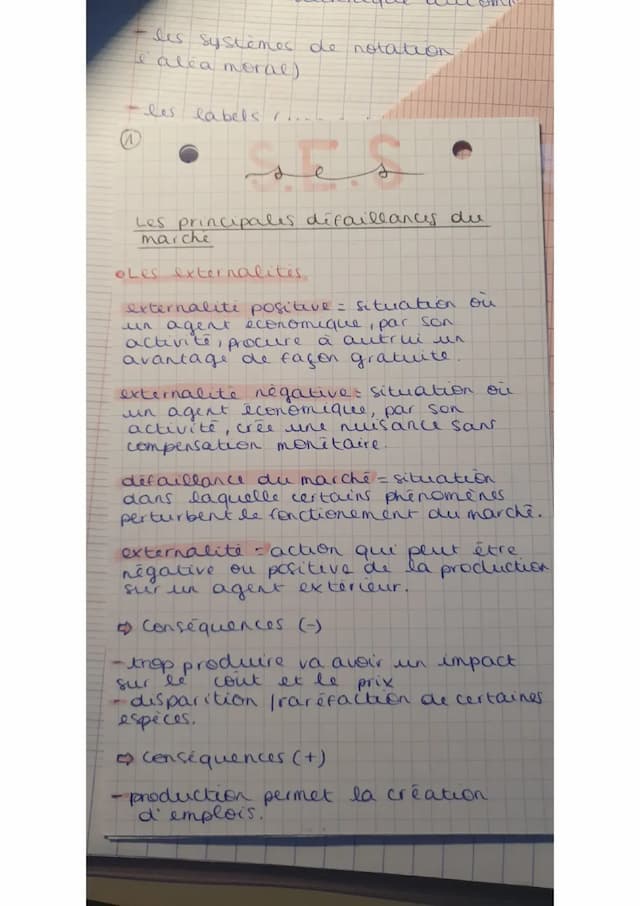 - les systèmes de notation
l'aléa moral)
- les labels (....
1
S.E.S
ses
Les principales défaillances du
marché
Les externalités.
externalité positive = situation où
un agent économique, par son
activité, procure à autrui un
avantage de façon gratuite.
externalité négative = situation où
un agent économique, par son
activité, crée une nuisance sans
compensation monétaire.
défaillance du marché = situation
dans laquelle certains phénomènes
perturbent le fonctionement du marché.
externalité = action qui peut être
négative ou positive de la production
sur un agent extérieur.
⇨ Conséquences (-)
- trop produire va avoir un impact
sur le coût et le prix
- disparition / raréfaction de certaines
espèces.
⇨ Conséquences (+)
- production permet la création
d'emplois.